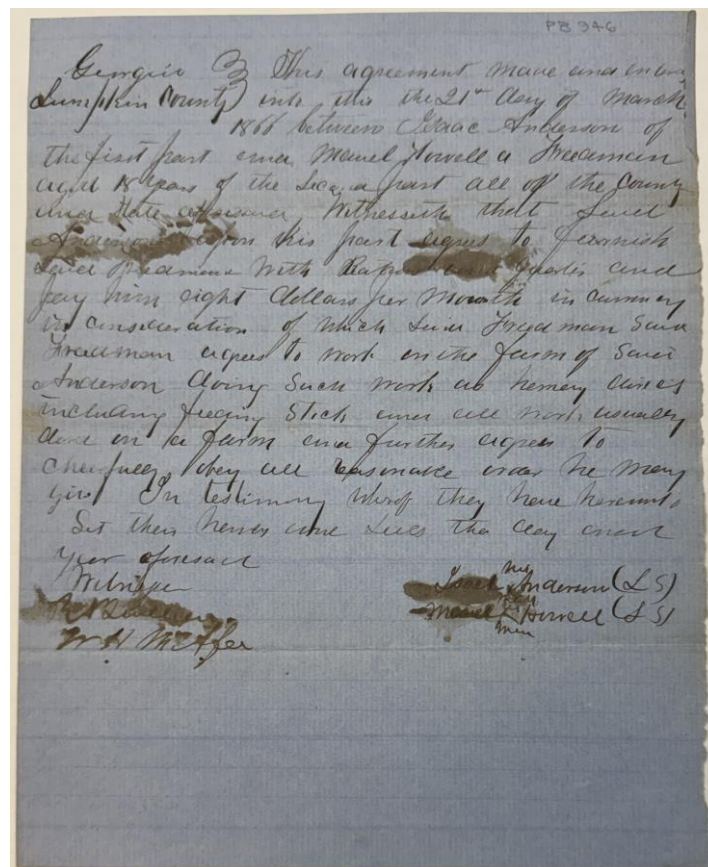 PB 946
Georgia } This agreement made and enter
Lumpkin County) into this the 21st day of March
1866 between Isaac Anderson of
the first part and Manel Howell a Freedman
aged 18 years of the part all of the County
and State aforesaid, Witnesseth that Said
Anderson upon his part agrees to furnish
Said Freedman with Rations and quarters and
pay him eight dollars per Month in currency
in consideration of which Said Freedman Said
Freedman agrees to work on the farm of Said
Anderson doing Such work as he may direct
including feeding Stock and all work usually
done on a farm and further agrees to
cheerfully obey all reasonable order he may
give In testimony whereof they have hereunto
Set their hands and Seals the day and
year aforesaid
Witness
Isaac Anderson (L S)
Manel Howell (L S)
W H McAfee